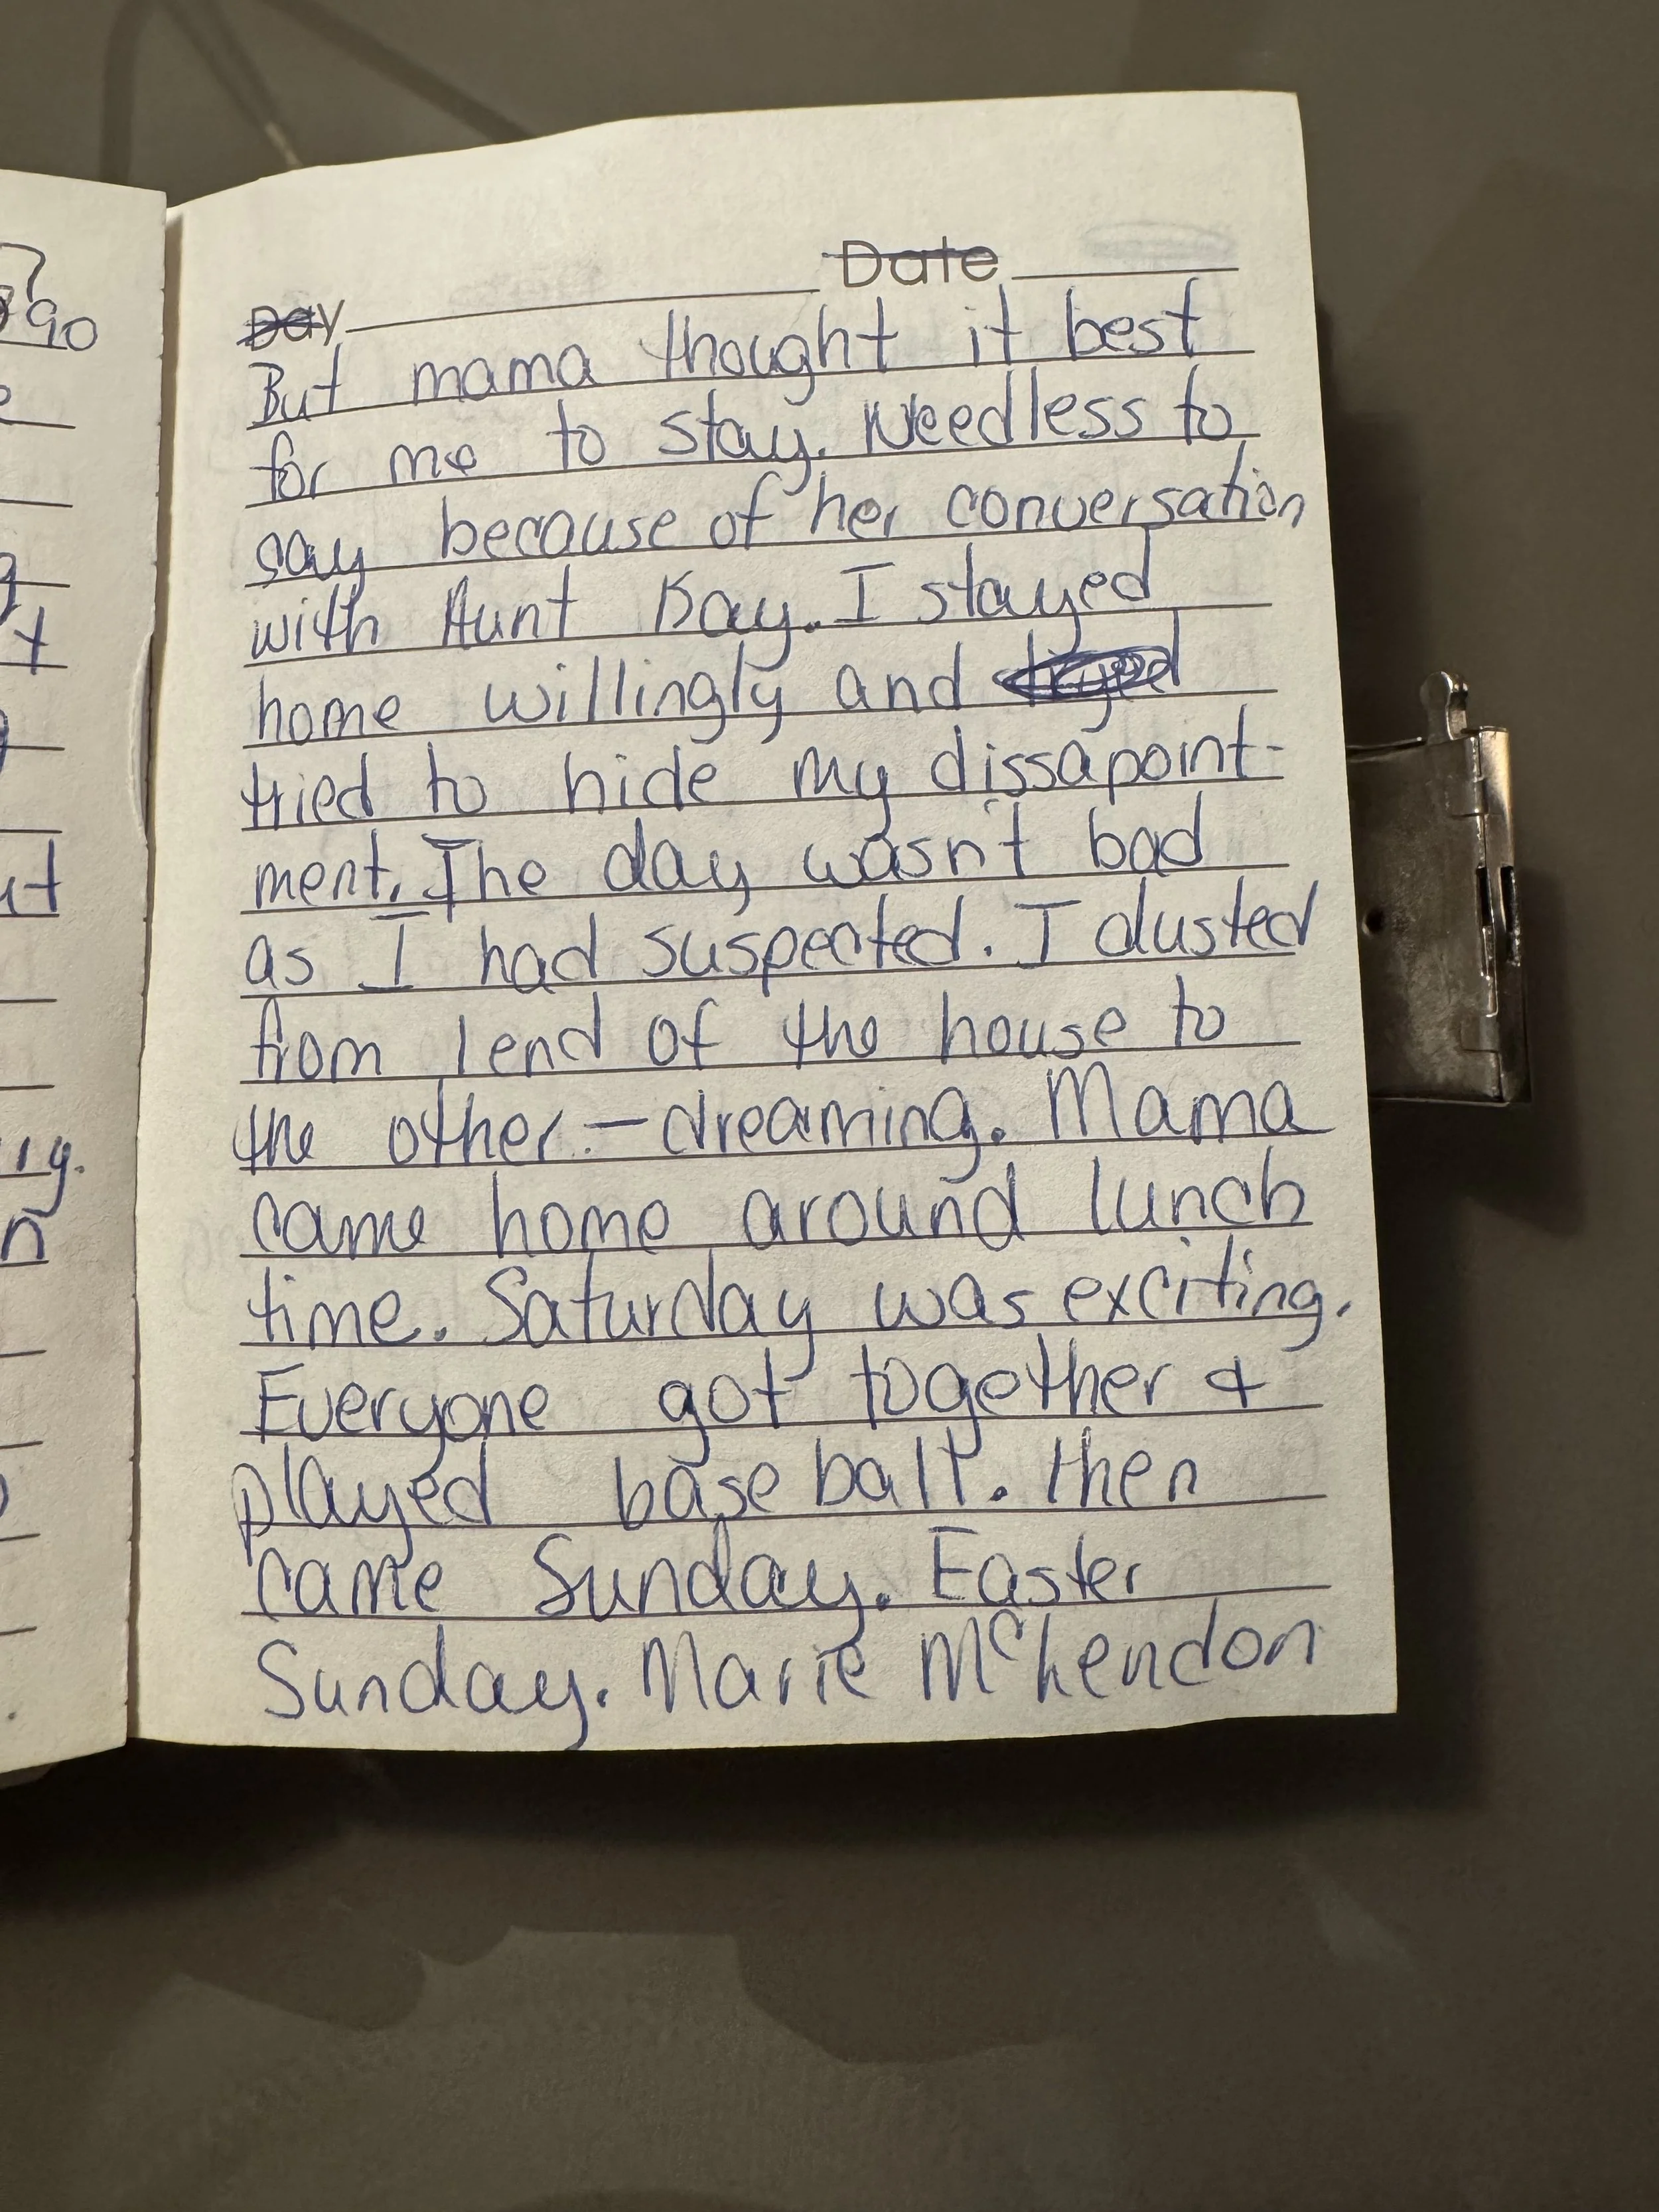 Day Date
But mama thought it best
for me to stay. Needless to
say because of her conversation
with Aunt Kay. I stayed
home willingly and tryed
tried to hide my dissapoint-
ment. The day wasn't bad
as I had suspected. I dusted
from 1 end of the house to
the other. — dreaming. Mama
came home around lunch
time. Saturday was exciting.
Everyone got together &
played base ball. Then
came Sunday. Easter
Sunday. Marie McKendon